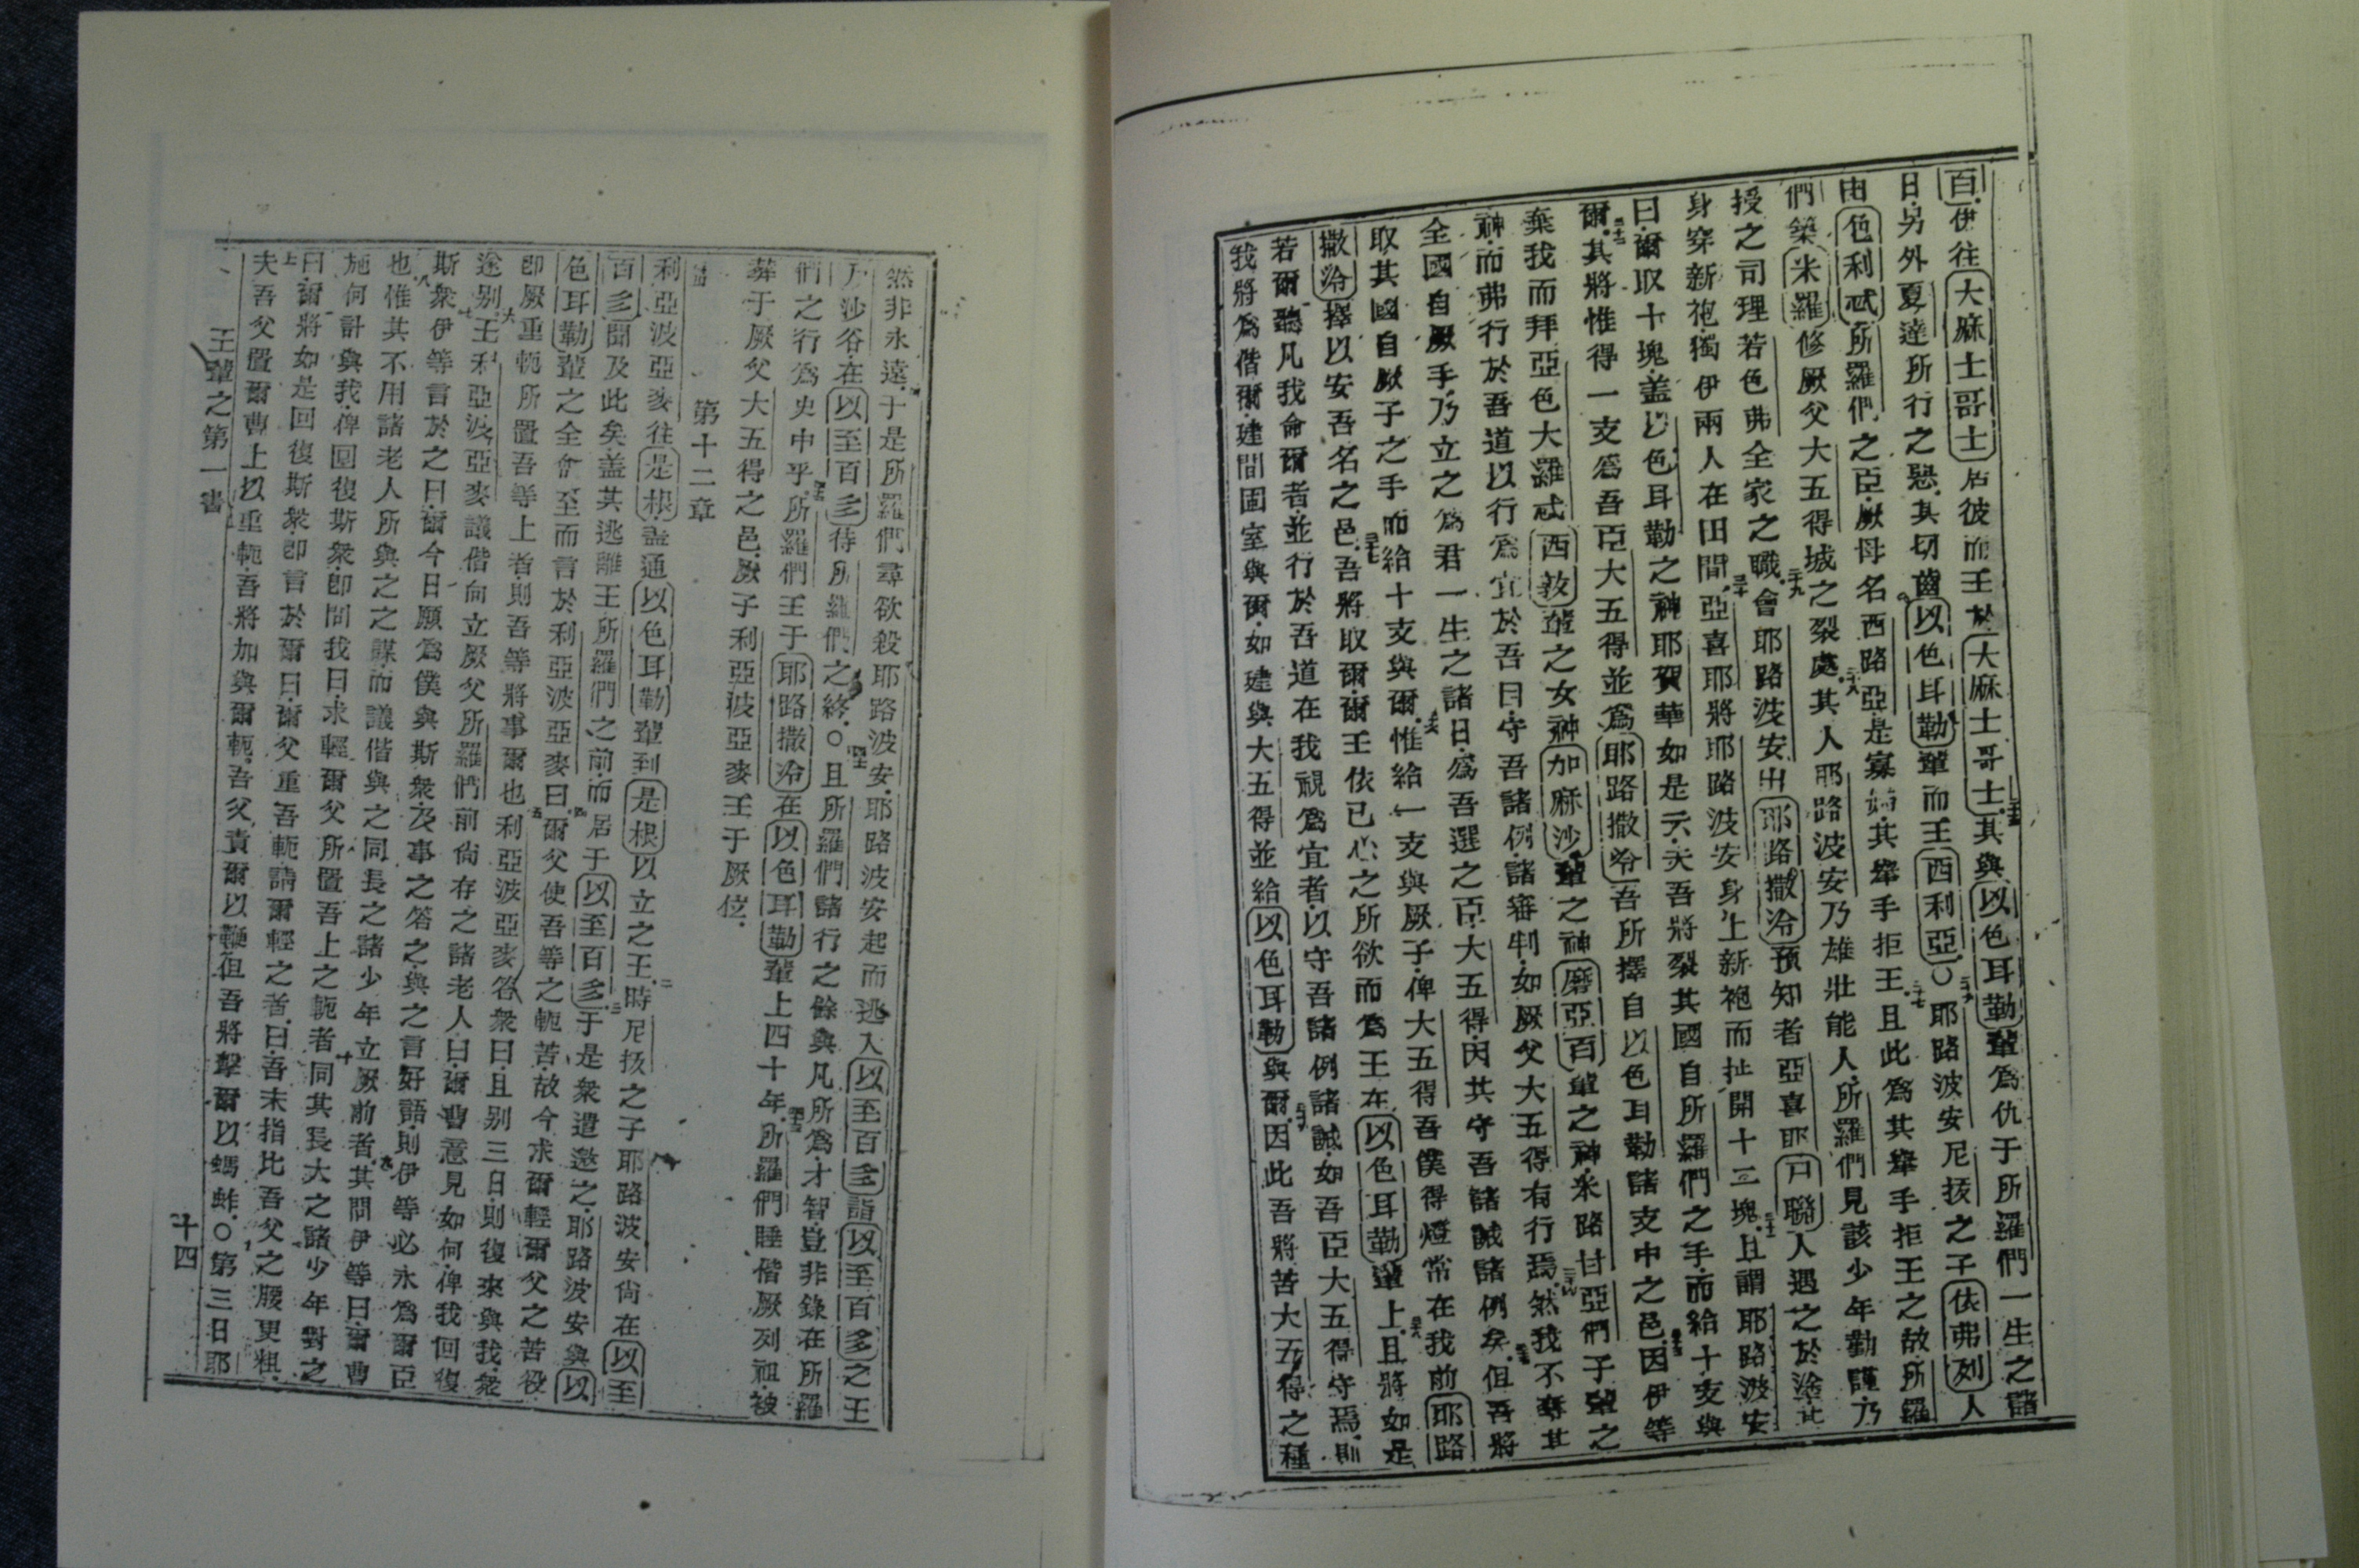 百伊往大麻士哥士居彼而王於大麻士哥士其與以色耳勒輩爲仇于所羅們一生之諸
日另外夏達所行之惡其切齒以色耳勒輩而王西利亞○耶路波安尼扳之子依弗列人
由色利忒所羅們之臣厥母名西路亞是寡婦其舉手拒王且此爲其舉手拒王之故所羅
們築米羅修厥父大五得城之裂處其人耶路波安乃雄壯能人所羅們見該少年勤謹乃
授之司理若色弗全家之職會耶路波安出耶路撒冷預知者亞喜耶戸聯人遇之於塗其
身穿新袍獨伊兩人在田間亞喜耶將耶路波安身上新袍而扯開十二塊且謂耶路波安
曰爾取十塊蓋以色耳勒之神耶賀華如是云夫吾將裂其國自所羅們之手而給十支與
爾其將惟得一支爲吾臣大五得並爲耶路撒冷吾所擇自以色耳勒諸支中之邑因伊等
棄我而拜亞色大羅忒西敦輩之女神加麻沙輩之神磨亞百輩之神米路甘亞們子輩之
神而弗行於吾道以行爲宜於吾目守吾諸例諸審判如厥父大五得有行焉然我不奪其
全國自厥手乃立之爲君一生之諸日爲吾選之臣大五得因其守吾諸誡諸例矣但吾將
取其國自厥子之手而給十支與爾惟給一支與厥子俾大五得吾僕得燈常在我前耶路
撒冷擇以安吾名之邑吾將取爾爾王依已心之所欲而爲王在以色耳勒輩上且將如是
若爾聽凡我命爾者並行於吾道在我視爲宜者以守吾諸例諸誡如吾臣大五得守焉則
我將爲偕爾建間固室與爾如建與大五得並給以色耳勒與爾因此吾將苦大五得之種
然非永遠于是所羅們尋欲殺耶路波安耶路波安起而逃入以至百多詣以至百多之王
厄沙谷在以至百多待所羅們之終○且所羅們諸行之餘與凡所爲才智豈非錄在所羅
們之行爲史中乎所羅們王于耶路撒冷在以色耳勒輩上四十年所羅們睡偕厥列祖被
葬于厥父大五得之邑厥子利亞波亞麥王于厥位
第十二章
利亞波亞麥往是根蓋通以色耳勒輩到是根以立之王時尼扳之子耶路波安尙在以至
百多聞及此矣蓋其逃離王所羅們之前而居于以至百多于是衆遣邀之耶路波安與以
色耳勒輩之全會至而言於利亞波亞麥曰爾父使吾等之軛苦故今求爾輕爾父之苦役
卽厥重軛所置吾等上者則吾等將事爾也利亞波亞麥答衆曰且别三日則復來與我衆
途别王利亞波亞麥議偕向立厥父所羅們前尙存之諸老人曰爾曹意見如何俾我回復
斯衆伊等言於之曰爾今日願爲僕與斯衆及事之答之與之言好語則伊等必永爲爾臣
也惟其不用諸老人所與之之謀而議偕與之同長之諸少年立厥前者其問伊等曰爾曹
施何計與我俾回復斯衆卽問我曰求輕爾父所置吾上之軛者同其長大之諸少年對之
曰爾將如是回復斯衆卽言於爾曰爾父重吾軛請爾輕之者曰吾末指比吾父之腰更粗
夫吾父置爾曹上以重軛吾將加與爾軛吾父責爾以鞭但吾將擊爾以螞蚌○第三日耶
王輩之第一書
十四